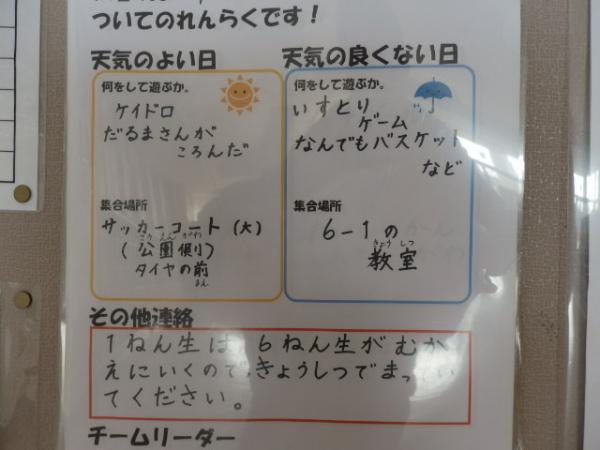 ついてのれんらくです！
天気のよい日
何をして遊ぶか。
ケイドロ
だるまさんが
ころんだ
集合場所
サッカーコート（大）
こうえんがわ
（公園側）
タイヤの前
まえ
天気の良くない日
何をして遊ぶか。
いすとり
ゲーム
なんでもバスケット
など
集合場所
6-1の
きょうしつ
教室
その他連絡
1ねん生は、6ねん生がむか
えにいくので、きょうしつでまってい
てください。
チームリーダー